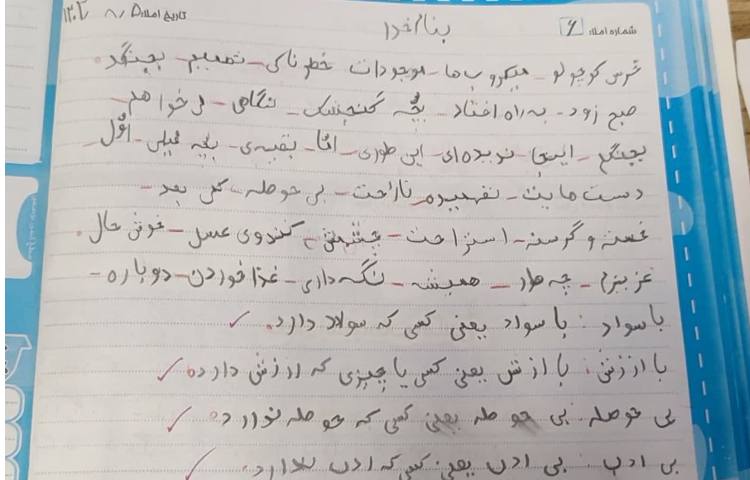 شماره املا: ۶
تاریخ املا: ۸/۵
بنام خدا
خرس کوچولو - میکروب ها - موجودات خطرناکی - تصمیم - بجنگد.
صبح زود - به راه افتاد - بچّه گنجشک - نگاهی - می خواهم
بجنگم - اینجا - نوبده ای - این طوری - امّا - بقیه ی - بچه فیلی - اوّل -
دست هایت - نفهمیده - ناراحت - بی حوصله - کمی بعد -
خسته و گرسنه - استراحت - چشمش - کندوی عسل - خوش حال.
عزیزم - چه طور - همیشه - نگه داری - غذا خوردن - دوباره -
با سواد: با سواد یعنی کسی که سواد دارد.
با ارزش: با ارزش یعنی کسی یا چیزی که ارزش دارد.
بی حوصله: بی حوصله یعنی کسی که حوصله ندارد.
بی ادب: بی ادب یعنی کسی که ادب ندارد.